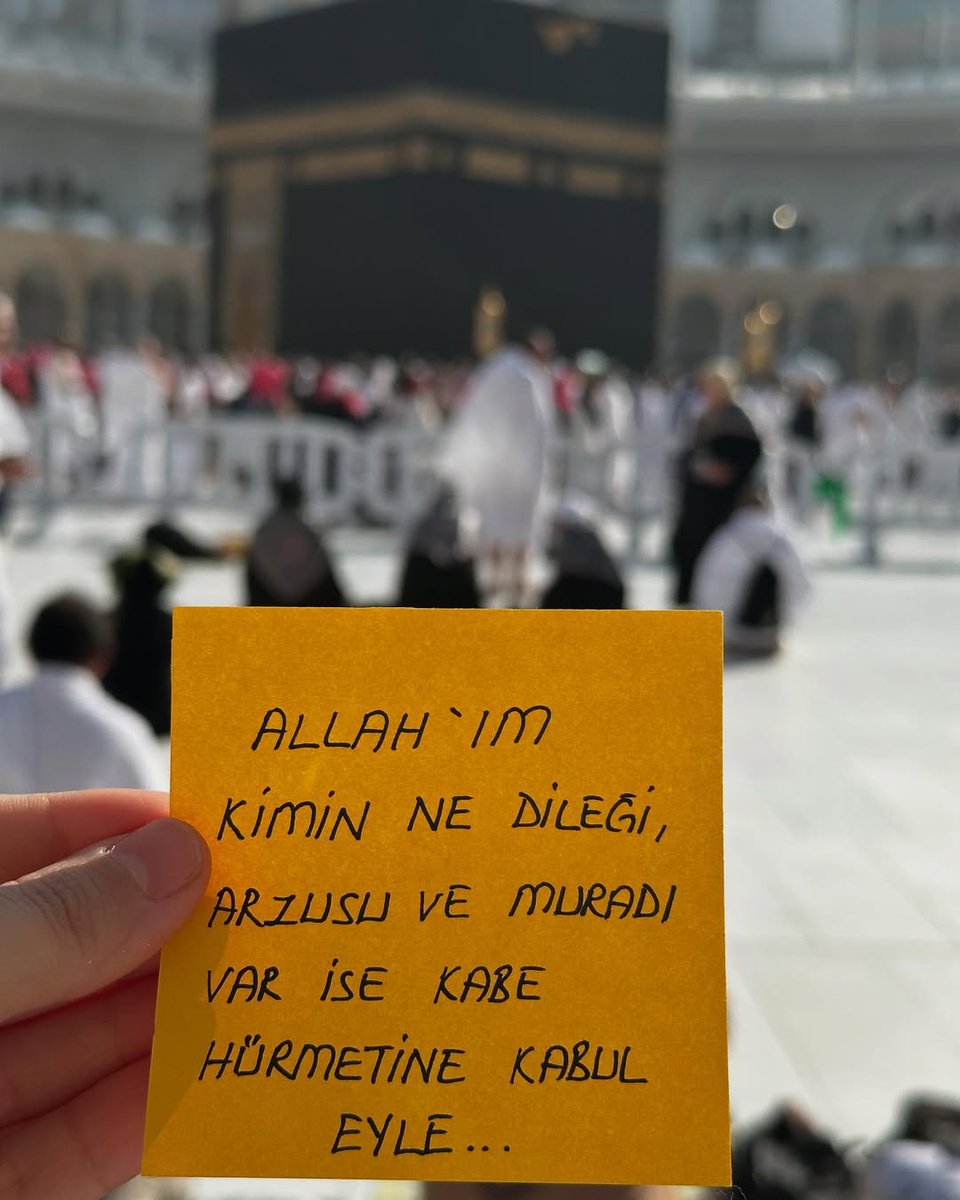 ALLAH`IM
KİMİN NE DİLEĞİ,
ARZUSU VE MURADI
VAR İSE KABE
HÜRMETİNE KABUL
EYLE...